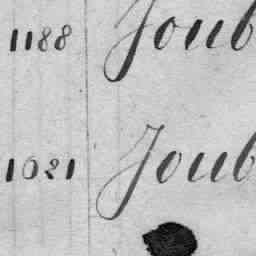 1188 Joub
1621 Joub